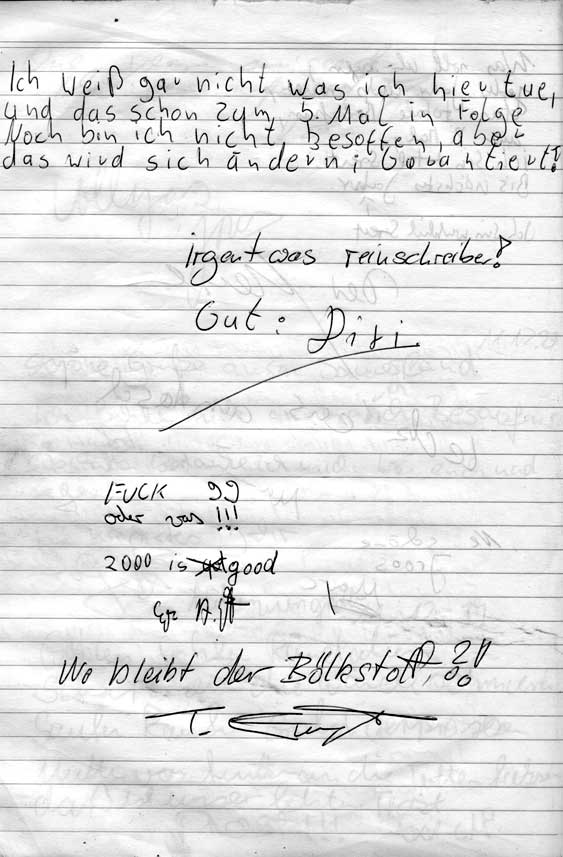 Ich weiß gar nicht was ich hier tue,
und das schon zum 5. Mal in Folge
Noch bin ich nicht Besoffen, aber
das wird sich ändern; Garantiert!
irgentwas reinschreiben?
Gut: Diti
FUCK 99
oder was !!!
2000 is good
Wo bleibt der Bölkstoff, ?!